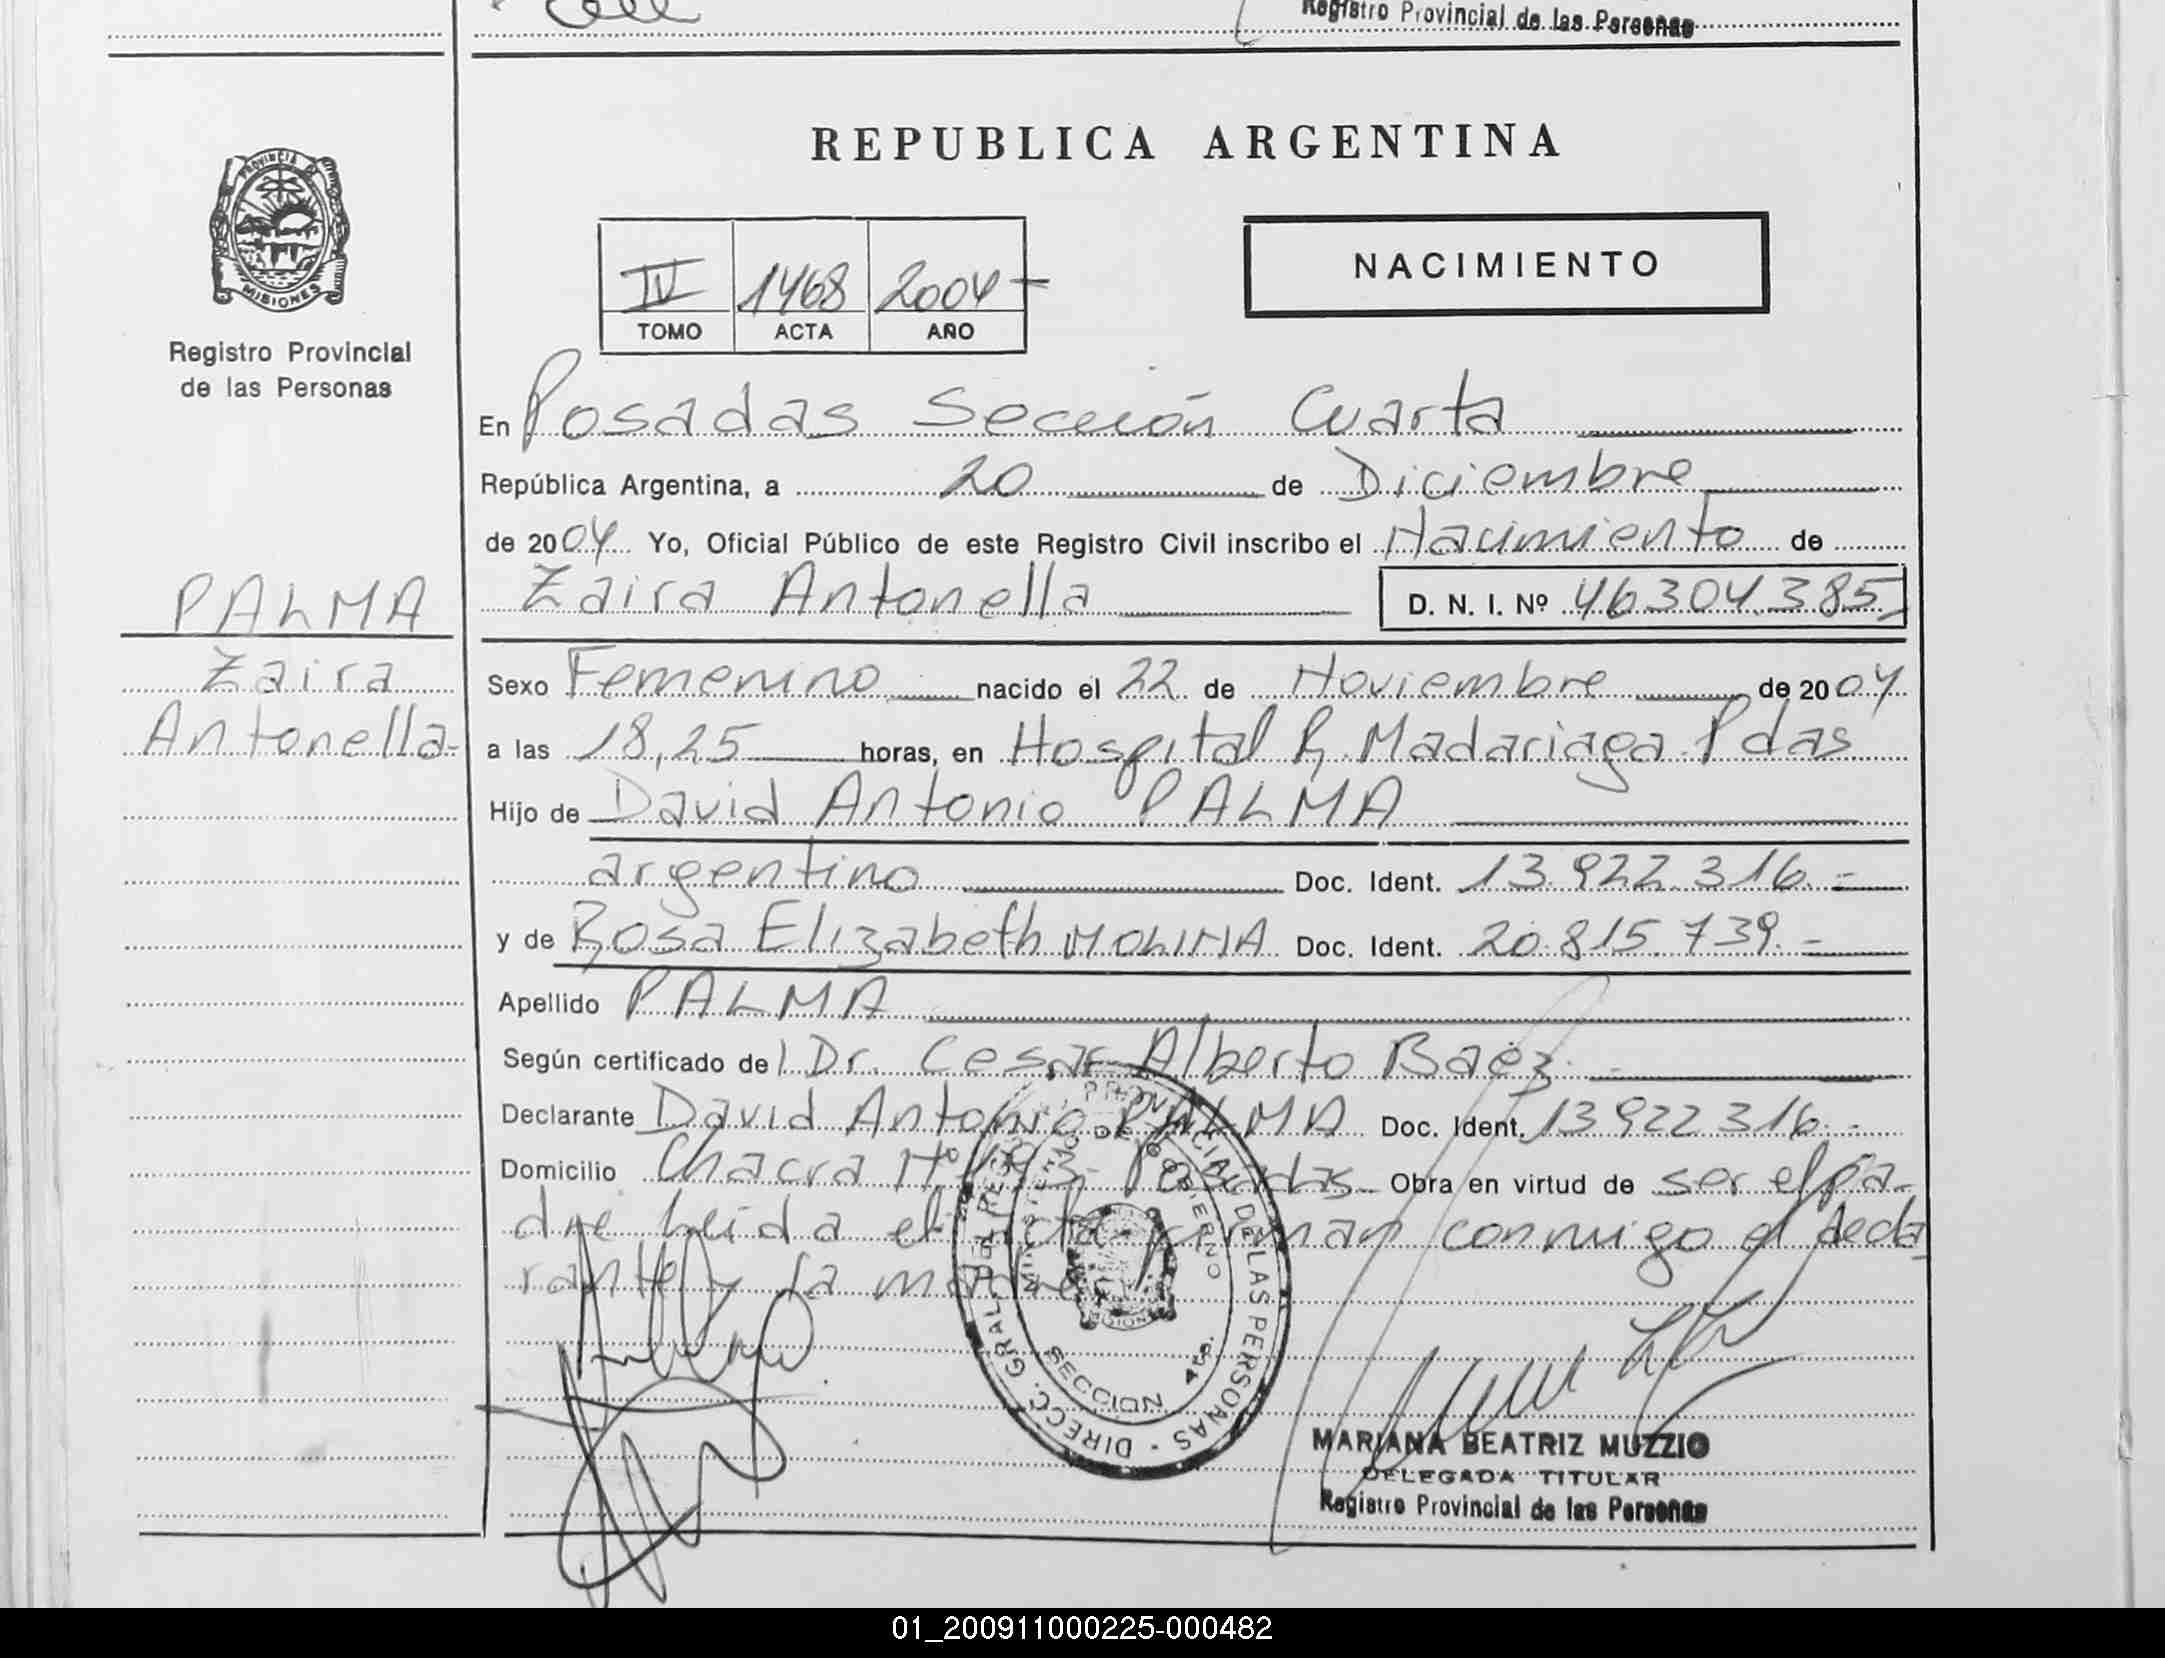 Registro Provincial de las Personas
REPUBLICA ARGENTINA
PROVINCIA DE
MISIONES
Registro Provincial
de las Personas
IV 1468 2004
TOMO ACTA AÑO
NACIMIENTO
En Posadas Sección Cuarta
República Argentina, a 20 de Diciembre
de 2004 Yo, Oficial Público de este Registro Civil inscribo el Nacimiento de
Zaira Antonella D. N. I. Nº 46304.385
PALMA
Zaira
Antonella-
Sexo Femenino nacido el 22 de Noviembre de 2004
a las 18,25 horas, en Hospital R. Madariaga Pdas
Hijo de David Antonio PALMA
argentino Doc. Ident. 13.922.316.=
y de Rosa Elizabeth MOLINA Doc. Ident. 20.815.739.=
Apellido PALMA
Según certificado del Dr. Cesar Alberto Baez.
Declarante David Antonio PALMA Doc. Ident. 13922316.-
Domicilio Chacra Nº Posadas Obra en virtud de ser el pa-
dre Leida el acta firman conmigo el decla
rante y la madre
DIRECC. GRAL. DEL REG. PROVINCIAL DE LAS PERSONAS
MINISTERIO DE GOBIERNO
MISIONES
SECCION 4ta.
MARIANA BEATRIZ MUZZIO
DELEGADA TITULAR
Registro Provincial de las Personas
01_200911000225-000482